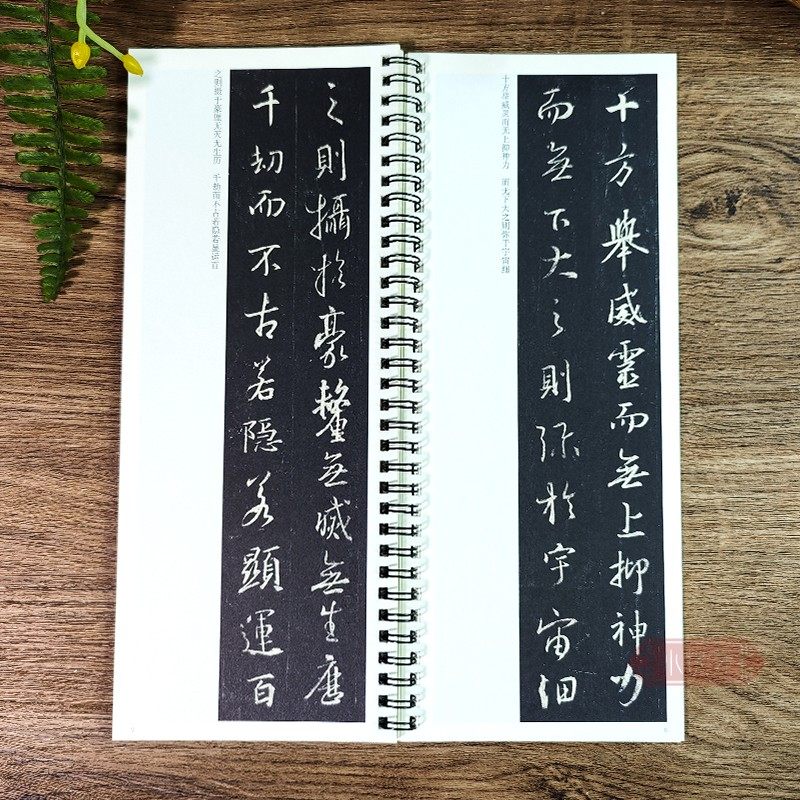 十方舉威靈而無上抑神力
而無下大之則彌於宇宙細
十方举威灵而无上抑神力 而无下大之则弥于宇宙细
之則攝於豪釐無滅無生歷
千劫而不古若隱若顯運百
之则摄于豪厘无灭无生历 千劫而不古若隐若显运百